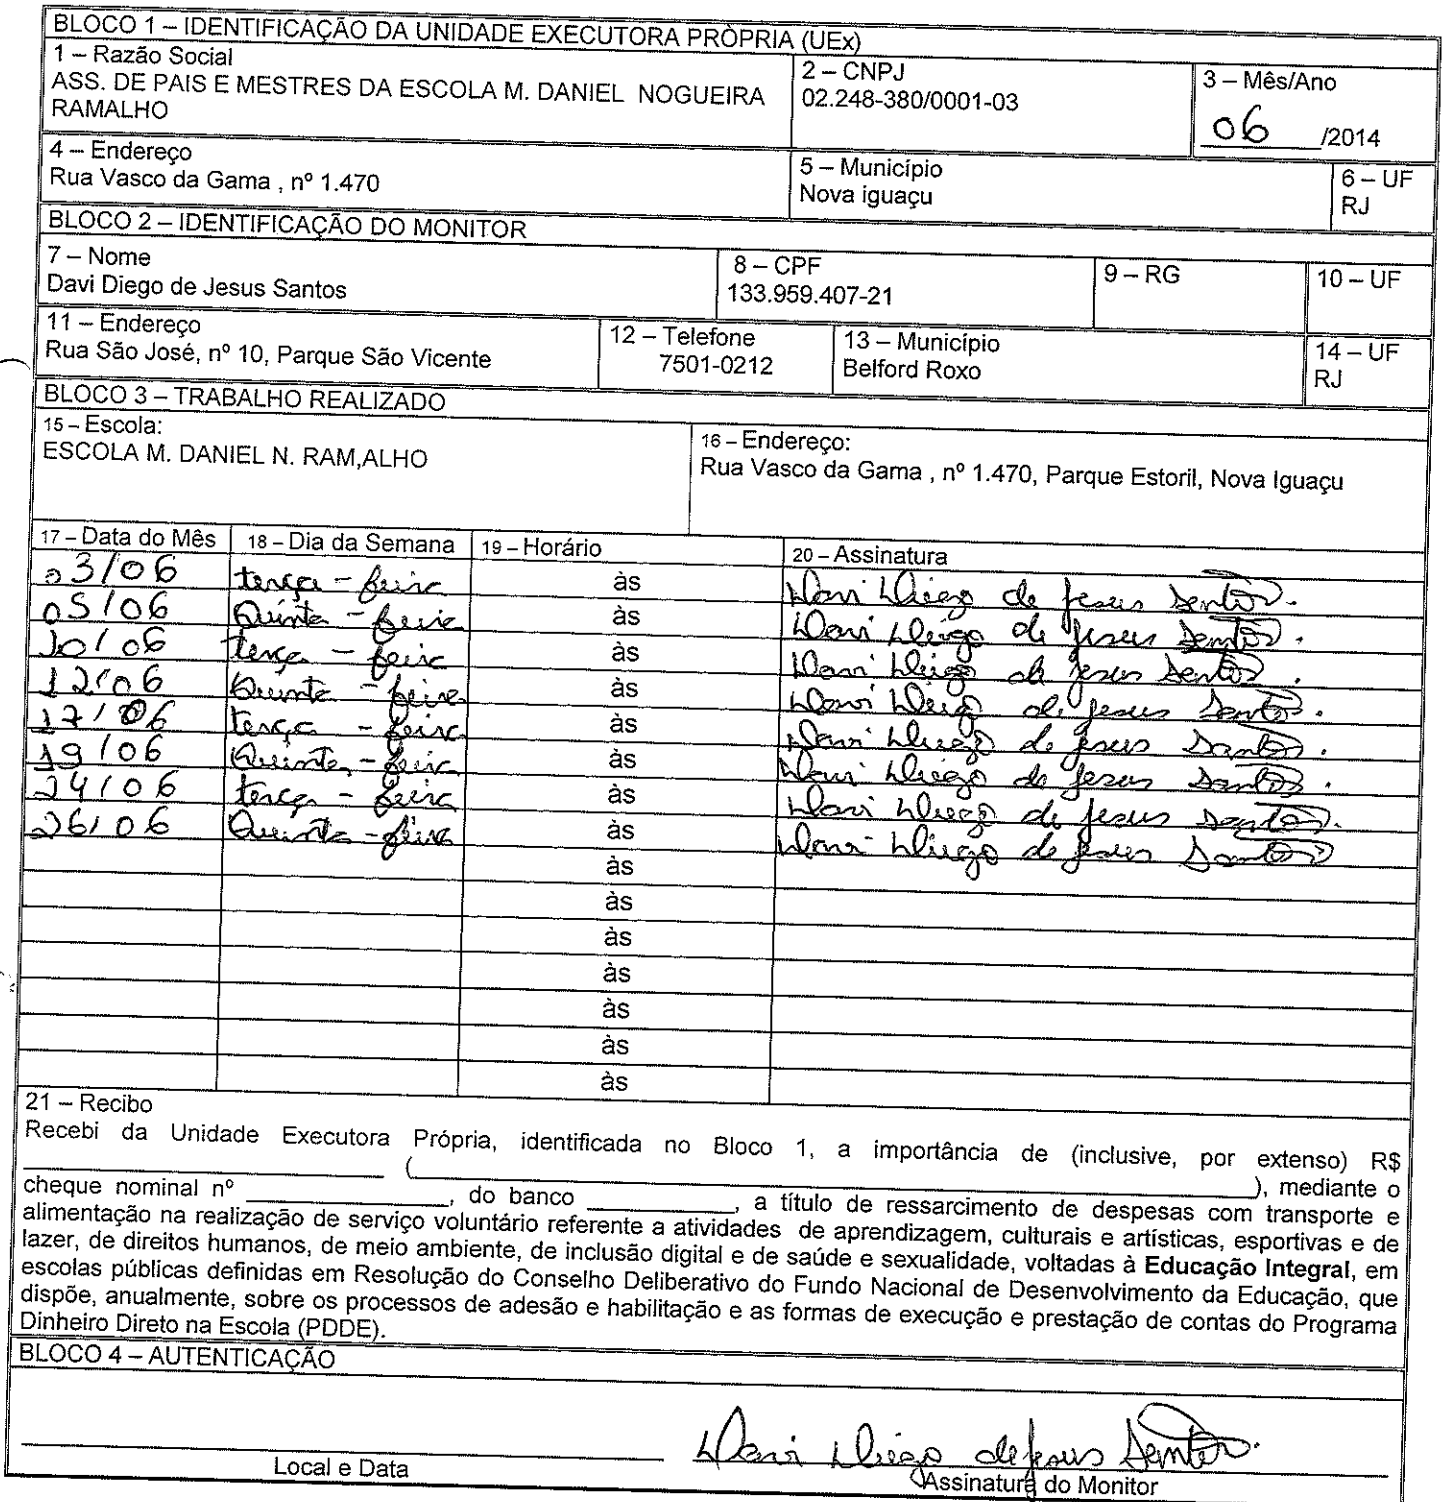 BLOCO 1 – IDENTIFICAÇÃO DA UNIDADE EXECUTORA PRÓPRIA (UEx)
1 – Razão Social
ASS. DE PAIS E MESTRES DA ESCOLA M. DANIEL NOGUEIRA
RAMALHO
2 – CNPJ
02.248-380/0001-03
3 – Mês/Ano
06 /2014
4 – Endereço
Rua Vasco da Gama , nº 1.470
5 – Município
Nova iguaçu
6 – UF
RJ
BLOCO 2 – IDENTIFICAÇÃO DO MONITOR
7 – Nome
Davi Diego de Jesus Santos
8 – CPF
133.959.407-21
9 – RG
10 – UF
11 – Endereço
Rua São José, nº 10, Parque São Vicente
12 – Telefone
7501-0212
13 – Município
Belford Roxo
14 – UF
RJ
BLOCO 3 – TRABALHO REALIZADO
15 – Escola:
ESCOLA M. DANIEL N. RAM,ALHO
16 – Endereço:
Rua Vasco da Gama , nº 1.470, Parque Estoril, Nova Iguaçu
17 – Data do Mês 18 – Dia da Semana 19 – Horário 20 – Assinatura
03/06 terça - feira às Davi Diego de Jesus Santos.
05/06 Quinta - feira às Davi Diego de Jesus Santos.
10/06 terça - feira às Davi Diego de Jesus Santos.
12/06 Quinta - feira às Davi Diego de Jesus Santos.
17/06 terça - feira às Davi Diego de Jesus Santos.
19/06 Quinta - feira às Davi Diego de Jesus Santos.
24/06 terça - feira às Davi Diego de Jesus Santos.
26/06 Quinta - feira às Davi Diego de Jesus Santos
às
às
às
às
às
às
às
21 – Recibo
Recebi da Unidade Executora Própria, identificada no Bloco 1, a importância de (inclusive, por extenso) R$
____________ (____________), mediante o
cheque nominal nº ____________, do banco ____________, a título de ressarcimento de despesas com transporte e
alimentação na realização de serviço voluntário referente a atividades de aprendizagem, culturais e artísticas, esportivas e de
lazer, de direitos humanos, de meio ambiente, de inclusão digital e de saúde e sexualidade, voltadas à Educação Integral, em
escolas públicas definidas em Resolução do Conselho Deliberativo do Fundo Nacional de Desenvolvimento da Educação, que
dispõe, anualmente, sobre os processos de adesão e habilitação e as formas de execução e prestação de contas do Programa
Dinheiro Direto na Escola (PDDE).
BLOCO 4 – AUTENTICAÇÃO
Davi Diego de Jesus Santos.
Local e Data
Assinatura do Monitor